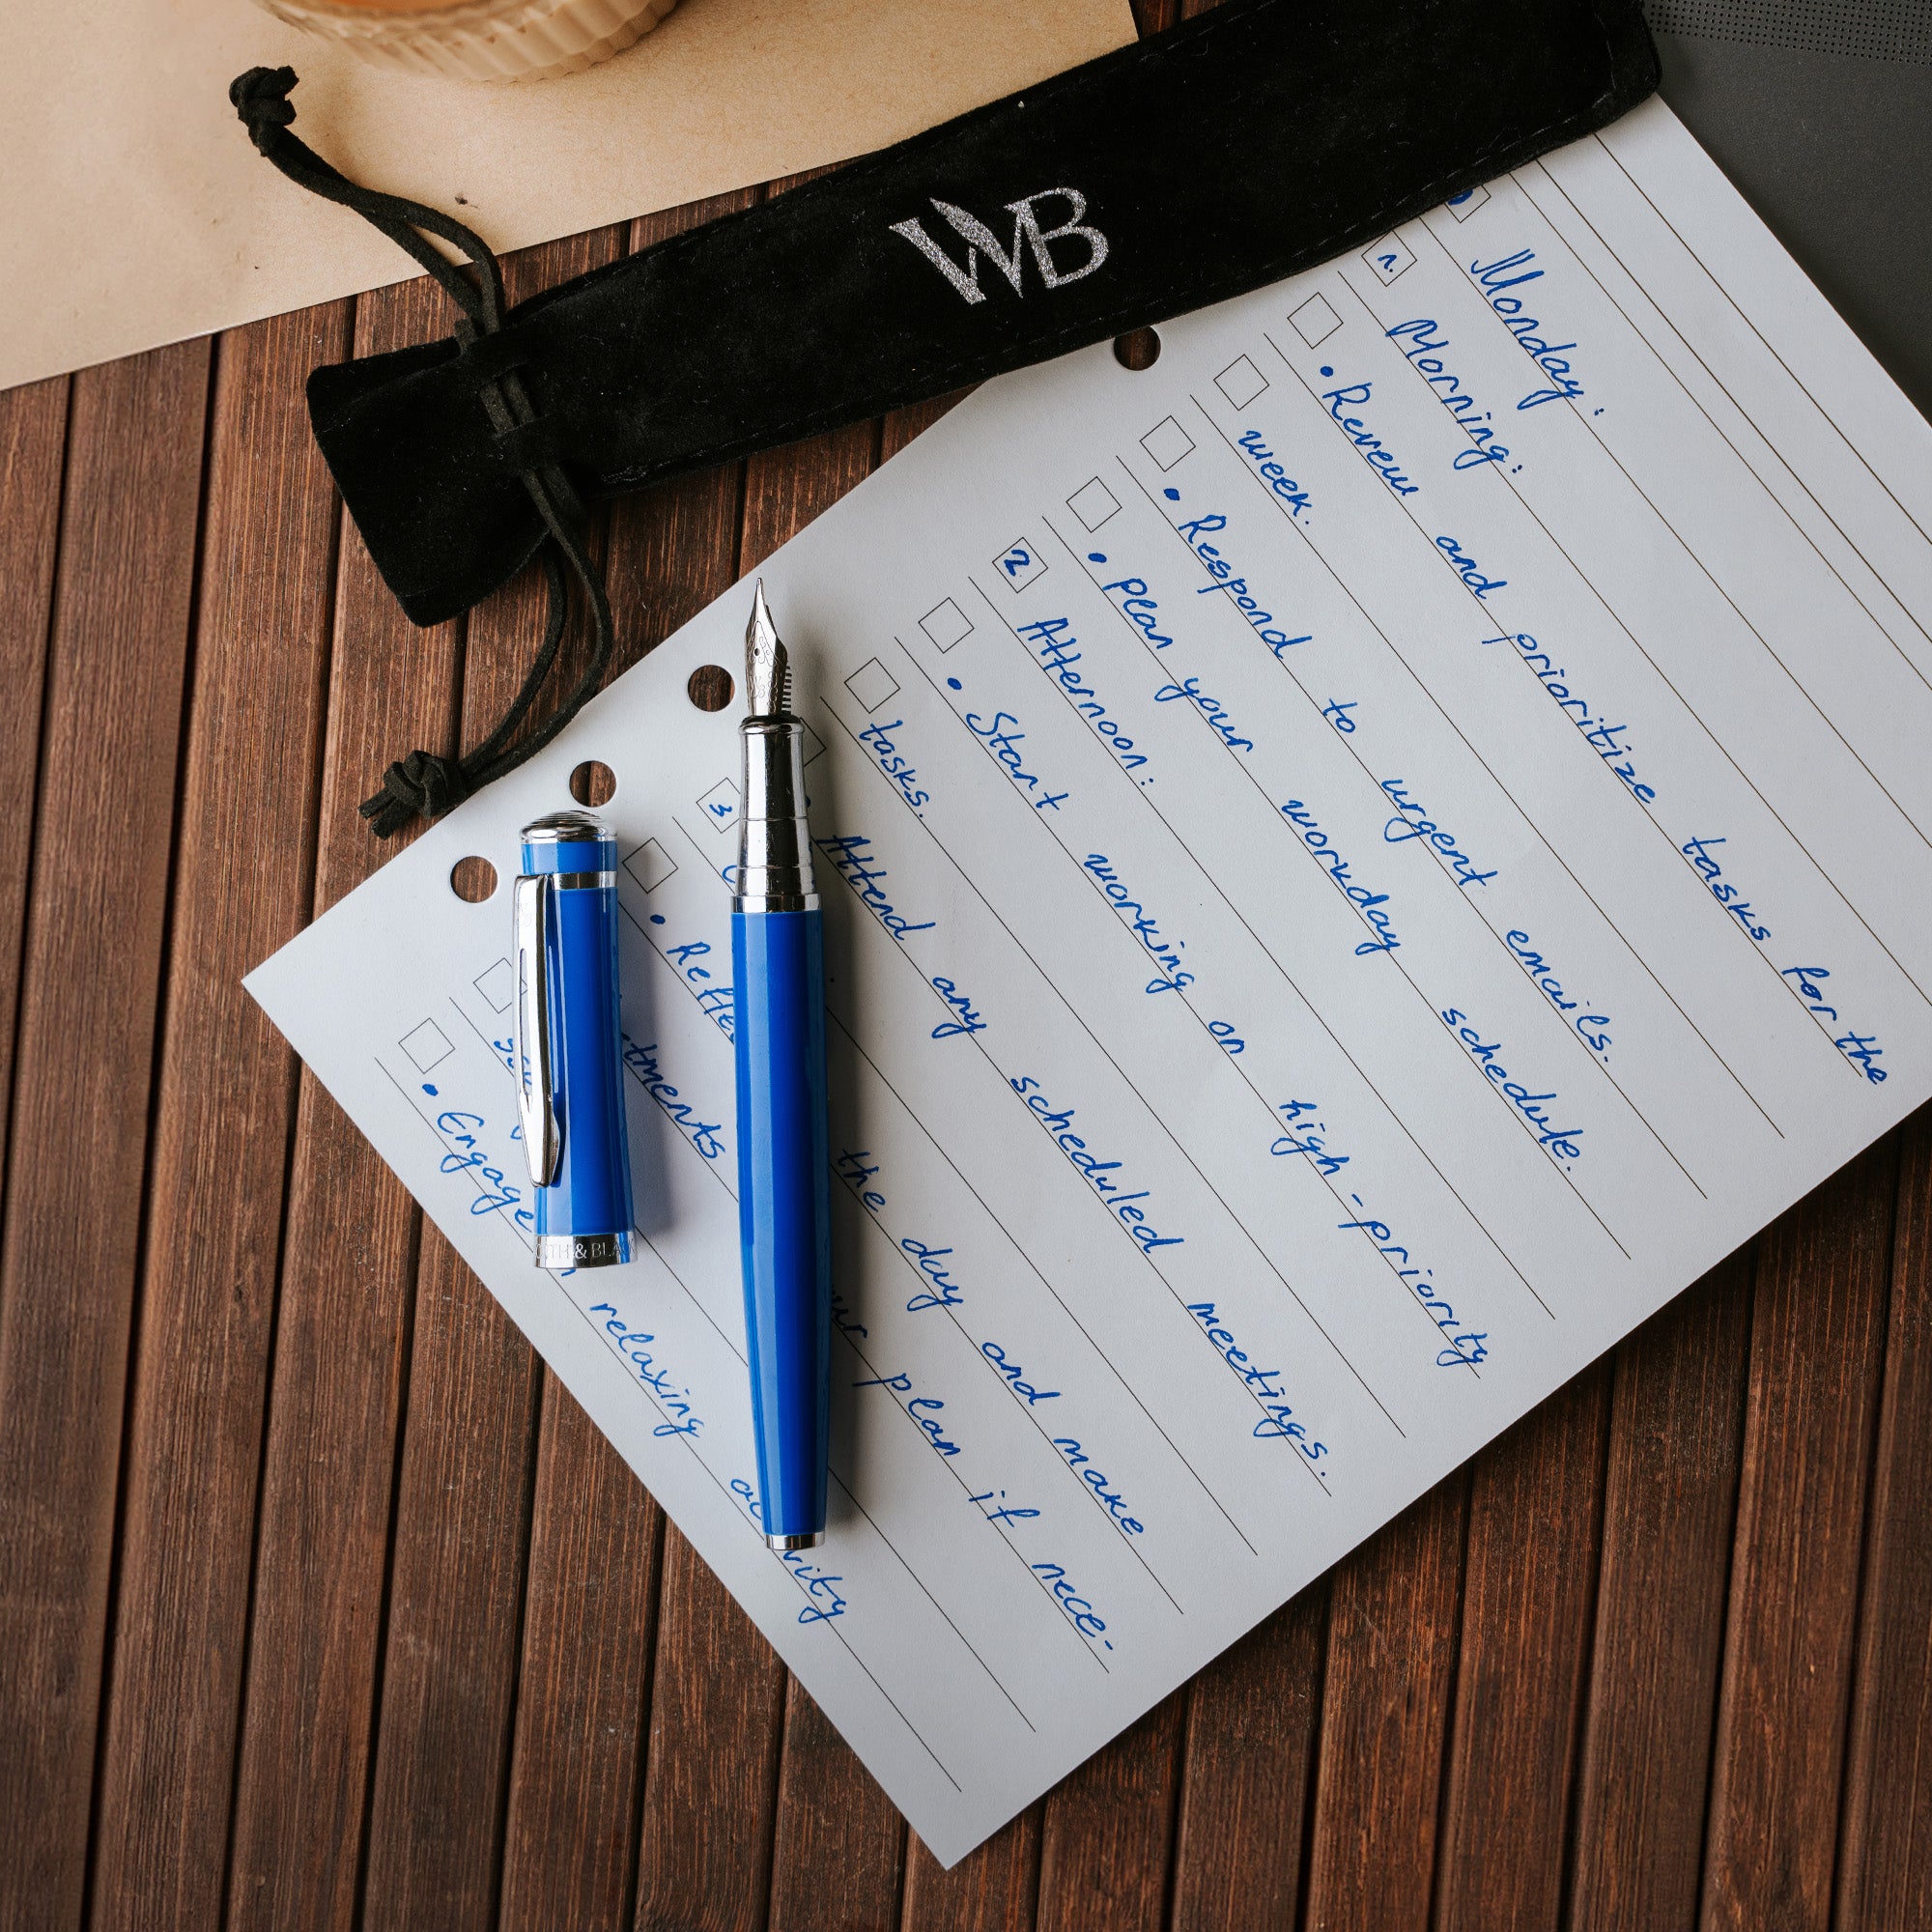 WB
Monday:
1. Morning:
• Review and prioritize tasks for the
week.
• Respond to urgent emails.
• plan your workday schedule.
2 Afternoon:
• Start working on high-priority
tasks.
• Attend any scheduled meetings.
3
• the day and make
plan if nece-
• Engage relaxing
& BLA